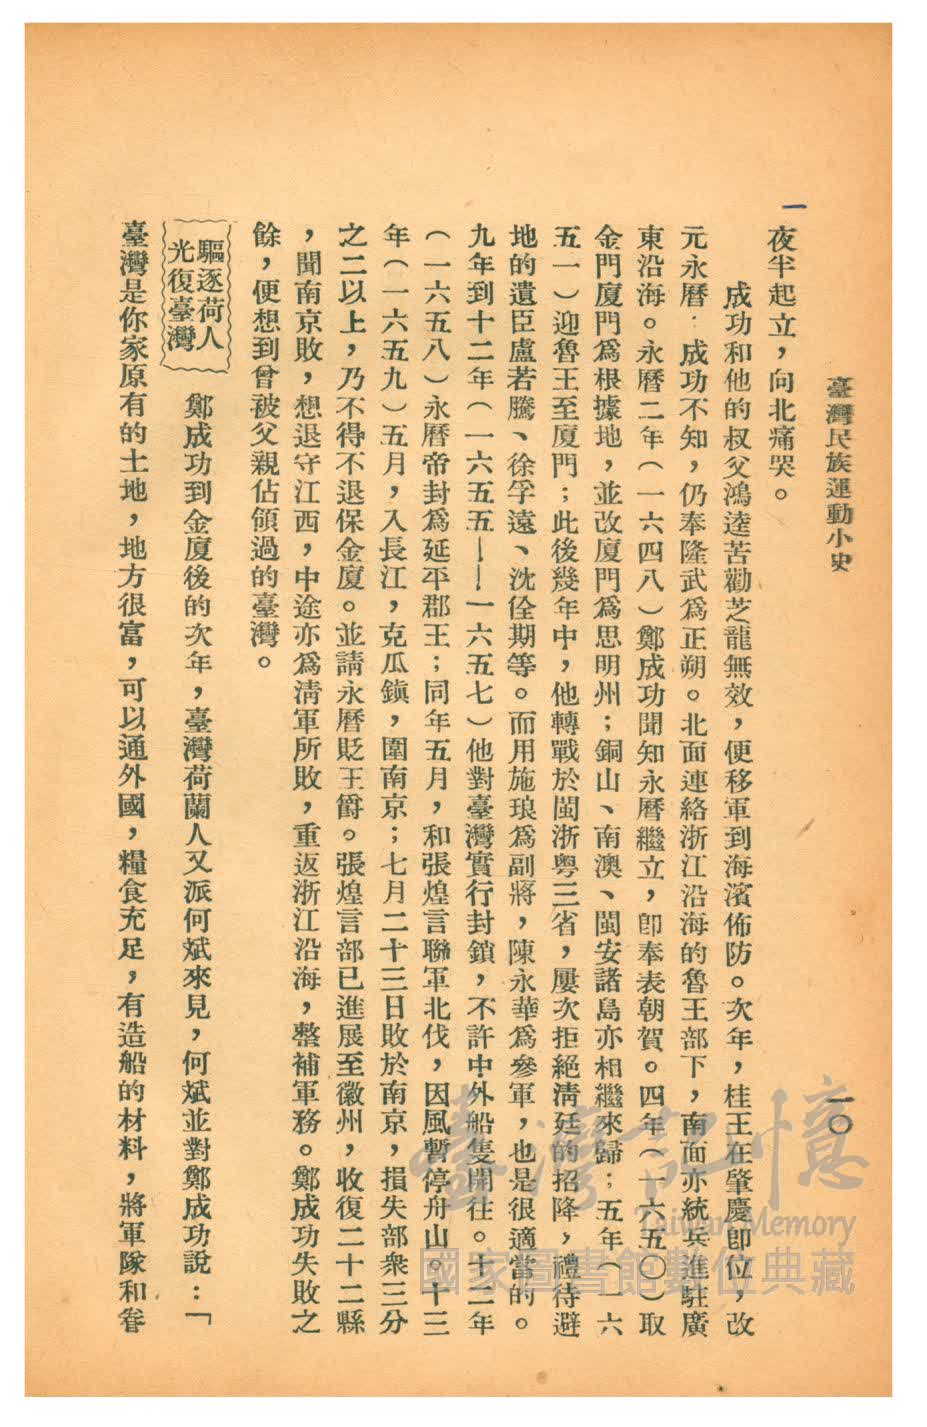 臺灣民族運動小史
一〇
夜半起立，向北痛哭。
成功和他的叔父鴻逵苦勸芝龍無效，便移軍到海濱佈防。次年，桂王在肇慶卽位，改
元永曆．成功不知，仍奉隆武爲正朔。北面連絡浙江沿海的魯王部下，南面亦統兵進駐廣
東沿海。永曆二年（一六四八）鄭成功聞知永曆繼立，卽奉表朝賀。四年（一六五〇）取
金門廈門爲根據地，並改廈門爲思明州；銅山、南澳、閩安諸島亦相繼來歸；五年（一六
五一）迎魯王至廈門；此後幾年中，他轉戰於閩浙粵三省，屢次拒絕淸廷的招降，禮待避
地的遺臣盧若騰、徐孚遠、沈佺期等。而用施琅爲副將，陳永華爲參軍，也是很適當的。
九年到十二年（一六五五——一六五七）他對臺灣實行封鎖，不許中外船隻開往。十二年
（一六五八）永曆帝封爲延平郡王；同年五月，和張煌言聯軍北伐，因風暫停舟山。十三
年（一六五九）五月，入長江，克瓜鎭，圍南京；七月二十三日敗於南京，損失部衆三分
之二以上，乃不得不退保金廈。並請永曆貶王爵。張煌言部已進展至徽州，收復二十二縣
，聞南京敗，想退守江西，中途亦爲淸軍所敗，重返浙江沿海，整補軍務。鄭成功失敗之
餘，便想到曾被父親佔領過的臺灣。
驅逐荷人
光復臺灣
鄭成功到金廈後的次年，臺灣荷蘭人又派何斌來見，何斌並對鄭成功說：「
臺灣是你家原有的土地，地方很富，可以通外國，糧食充足，有造船的材料，將軍隊和眷
臺灣記憶
Taiwan Memory
國家圖書館數位典藏